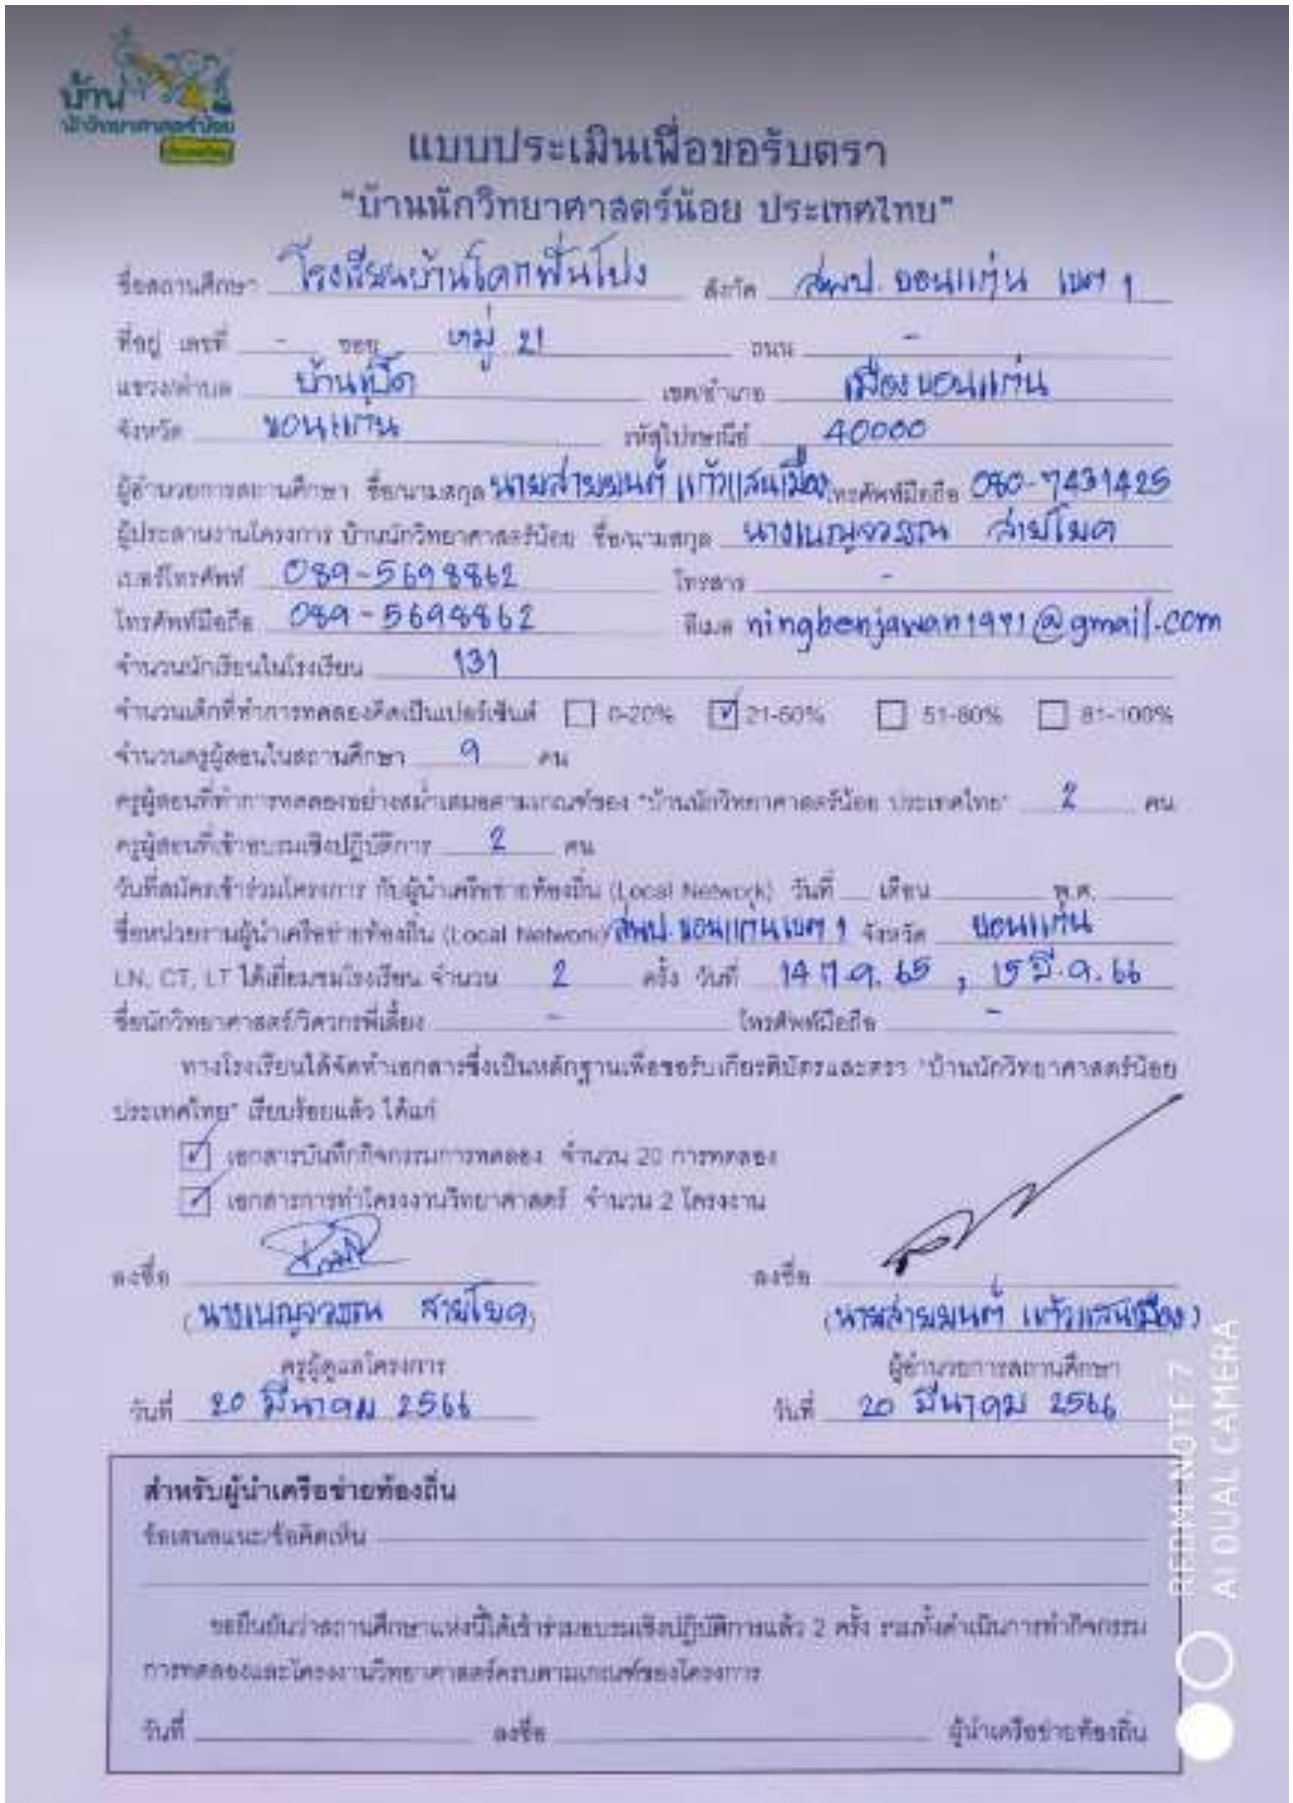 บ้าน
นักวิทยาศาสตร์น้อย
แบบประเมินเพื่อขอรับตรา
"บ้านนักวิทยาศาสตร์น้อย ประเทศไทย"
ชื่อสถานศึกษา โรงเรียนบ้านโคกฟันโปง สังกัด สพป. ขอนแก่น เขต 1
ที่อยู่ เลขที่ - ซอย หมู่ 21 ถนน -
แขวง/ตำบล บ้านเป็ด เขต/อำเภอ เมืองขอนแก่น
จังหวัด ขอนแก่น รหัสไปรษณีย์ 40000
ผู้อำนวยการสถานศึกษา ชื่อ/นามสกุล นายสายยนต์ แก้วแสนเมือง โทรศัพท์มือถือ 080-7431425
ผู้ประสานงานโครงการ บ้านนักวิทยาศาสตร์น้อย ชื่อ/นามสกุล นางเบญจวรรณ สายโยค
เบอร์โทรศัพท์ 089-5698862 โทรสาร -
โทรศัพท์มือถือ 089-5698862 อีเมล ningbenjawan1971@gmail.com
จำนวนนักเรียนในโรงเรียน 131
จำนวนเด็กที่ทำการทดลองคิดเป็นเปอร์เซ็นต์ 0-20% ✓ 21-50% 51-80% 81-100%
จำนวนครูผู้สอนในสถานศึกษา 9 คน
ครูผู้สอนที่ทำการทดลองอย่างสม่ำเสมอตามเกณฑ์ของ "บ้านนักวิทยาศาสตร์น้อย ประเทศไทย" 2 คน
ครูผู้สอนที่เข้าอบรมเชิงปฏิบัติการ 2 คน
วันที่สมัครเข้าร่วมโครงการ กับผู้นำเครือข่ายท้องถิ่น (Local Network) วันที่ เดือน พ.ศ.
ชื่อหน่วยงานผู้นำเครือข่ายท้องถิ่น (Local Network) สพป. ขอนแก่น เขต 1 จังหวัด ขอนแก่น
LN, CT, LT ได้เยี่ยมชมโรงเรียน จำนวน 2 ครั้ง วันที่ 14 ก.ค. 65 , 15 มี.ค. 66
ชื่อนักวิทยาศาสตร์/วิศวกรพี่เลี้ยง - โทรศัพท์มือถือ -
ทางโรงเรียนได้จัดทำเอกสารซึ่งเป็นหลักฐานเพื่อขอรับเกียรติบัตรและตรา "บ้านนักวิทยาศาสตร์น้อย
ประเทศไทย" เรียบร้อยแล้ว ได้แก่
✓ เอกสารบันทึกกิจกรรมการทดลอง จำนวน 20 การทดลอง
✓ เอกสารการทำโครงงานวิทยาศาสตร์ จำนวน 2 โครงงาน
ลงชื่อ ลงชื่อ
(นางเบญจวรรณ สายโยค) (นายสายยนต์ แก้วแสนเมือง)
ครูผู้ดูแลโครงการ ผู้อำนวยการสถานศึกษา
วันที่ 20 มีนาคม 2566 วันที่ 20 มีนาคม 2566
สำหรับผู้นำเครือข่ายท้องถิ่น
ข้อเสนอแนะ/ข้อคิดเห็น
ขอยืนยันว่าสถานศึกษาแห่งนี้ได้เข้าร่วมอบรมเชิงปฏิบัติการแล้ว 2 ครั้ง รวมทั้งดำเนินการทำกิจกรรม
การทดลองและโครงงานวิทยาศาสตร์ครบตามเกณฑ์ของโครงการ
วันที่ ลงชื่อ ผู้นำเครือข่ายท้องถิ่น
REDMI NOTE 7
AI DUAL CAMERA